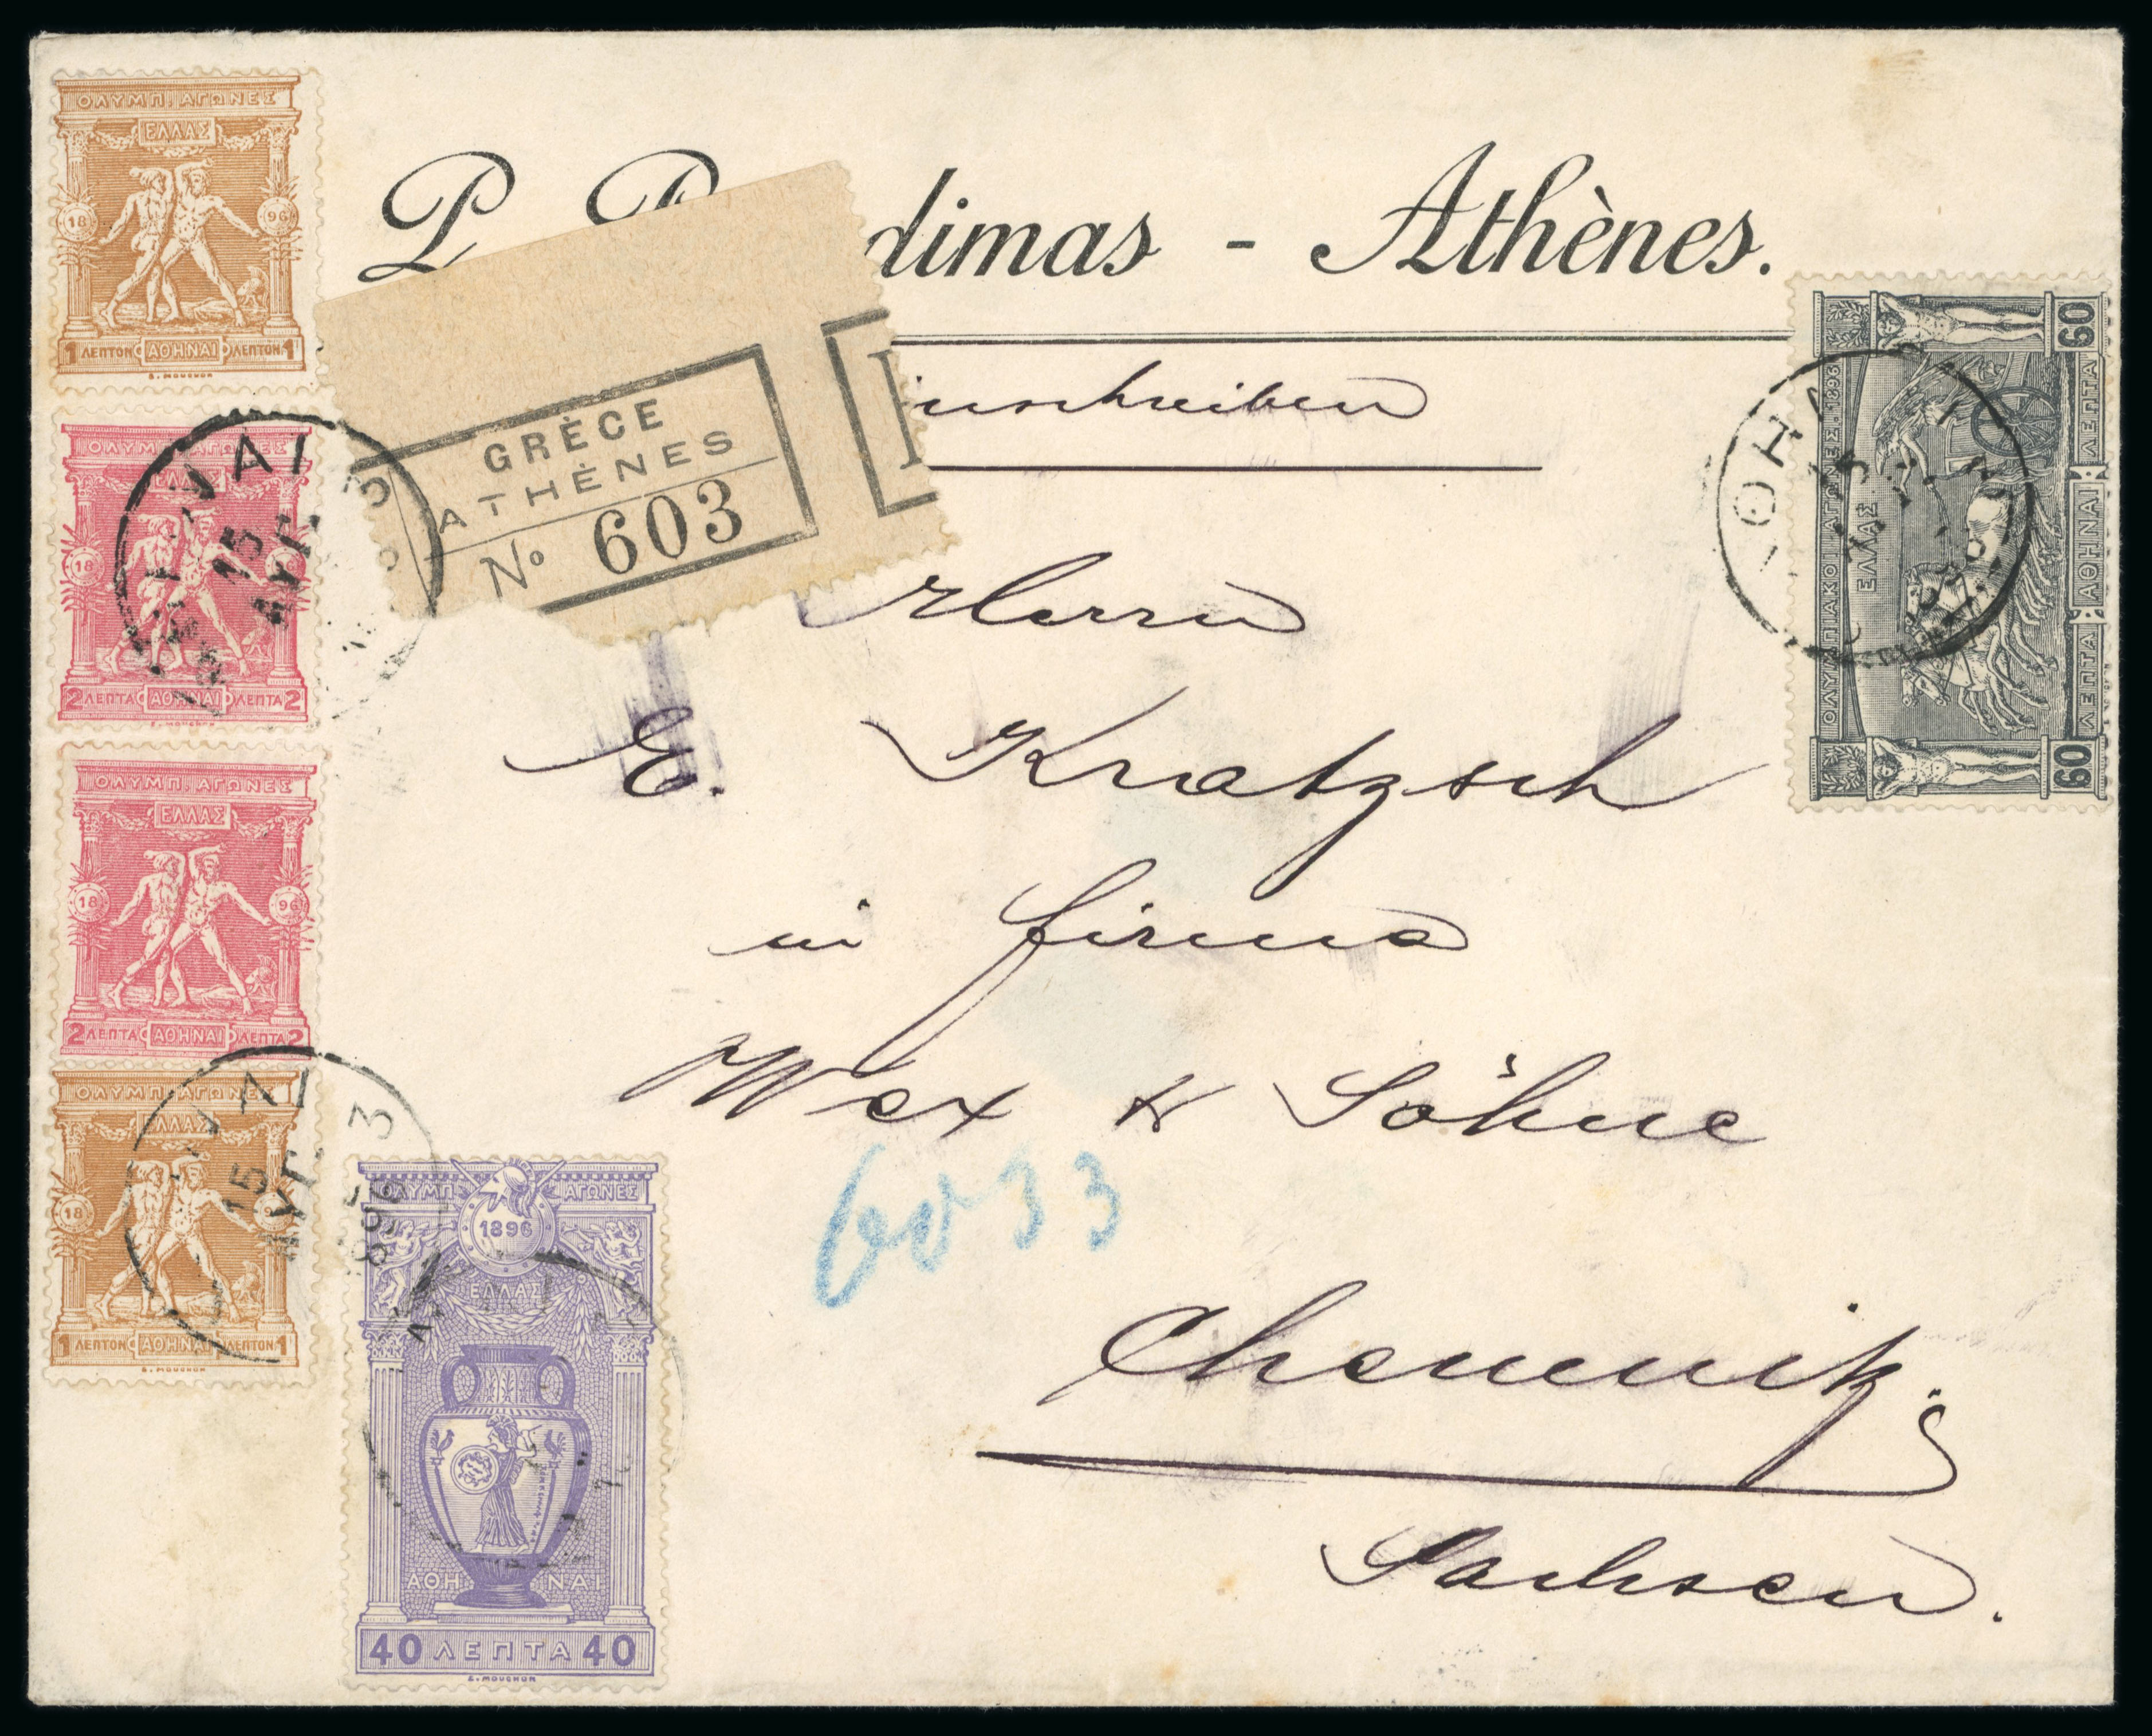 ΟΛΥΜΠ. ΑΓΩΝΕΣ
ΕΛΛΑΣ
18 96
1 ΛΕΠΤΟΝ ΑΘΗΝΑΙ ΛΕΠΤΟΝ 1
E. MOUCHON
P. dimas - Athènes.
GRÈCE
ATHÈNES
No 603
inschreiben
ΟΛΥΜΠ. ΑΓΩΝΕΣ
ΕΛΛΑΣ
18
2 ΛΕΠΤΑ ΑΘΗΝΑΙ ΛΕΠΤΑ 2
E. MOUCHON
ΝΑΙ
15
ΑΥΓ.
60 ΛΕΠΤΑ ΑΘΗΝΑΙ ΛΕΠΤΑ 60
ΟΛΥΜΠΙΑΚΟΙ ΑΓΩΝΕΣ. 1896
ΕΛΛΑΣ
ΑΘΗ
15
Herrn
E. Kratzsch
in Firma
Wex & Söhne
6033
Chemnitz.
Sachsen.
ΟΛΥΜΠ. ΑΓΩΝΕΣ
ΕΛΛΑΣ
18 96
2 ΛΕΠΤΑ ΑΘΗΝΑΙ ΛΕΠΤΑ 2
ΟΛΥΜΠ. ΑΓΩΝΕΣ
ΕΛΛΑΣ
18 9
1 ΛΕΠΤΟΝ ΑΘΗΝΑΙ ΛΕΠΤΟΝ 1
E. MOUCHON
ΝΑΙ 3
15
ΑΥΓ.
96
ΟΛΥΜΠ. ΑΓΩΝΕΣ
1896
ΕΛΛΑΣ
ΑΘΗΝΑΙ
40 ΛΕΠΤΑ 40
E. MOUCHON